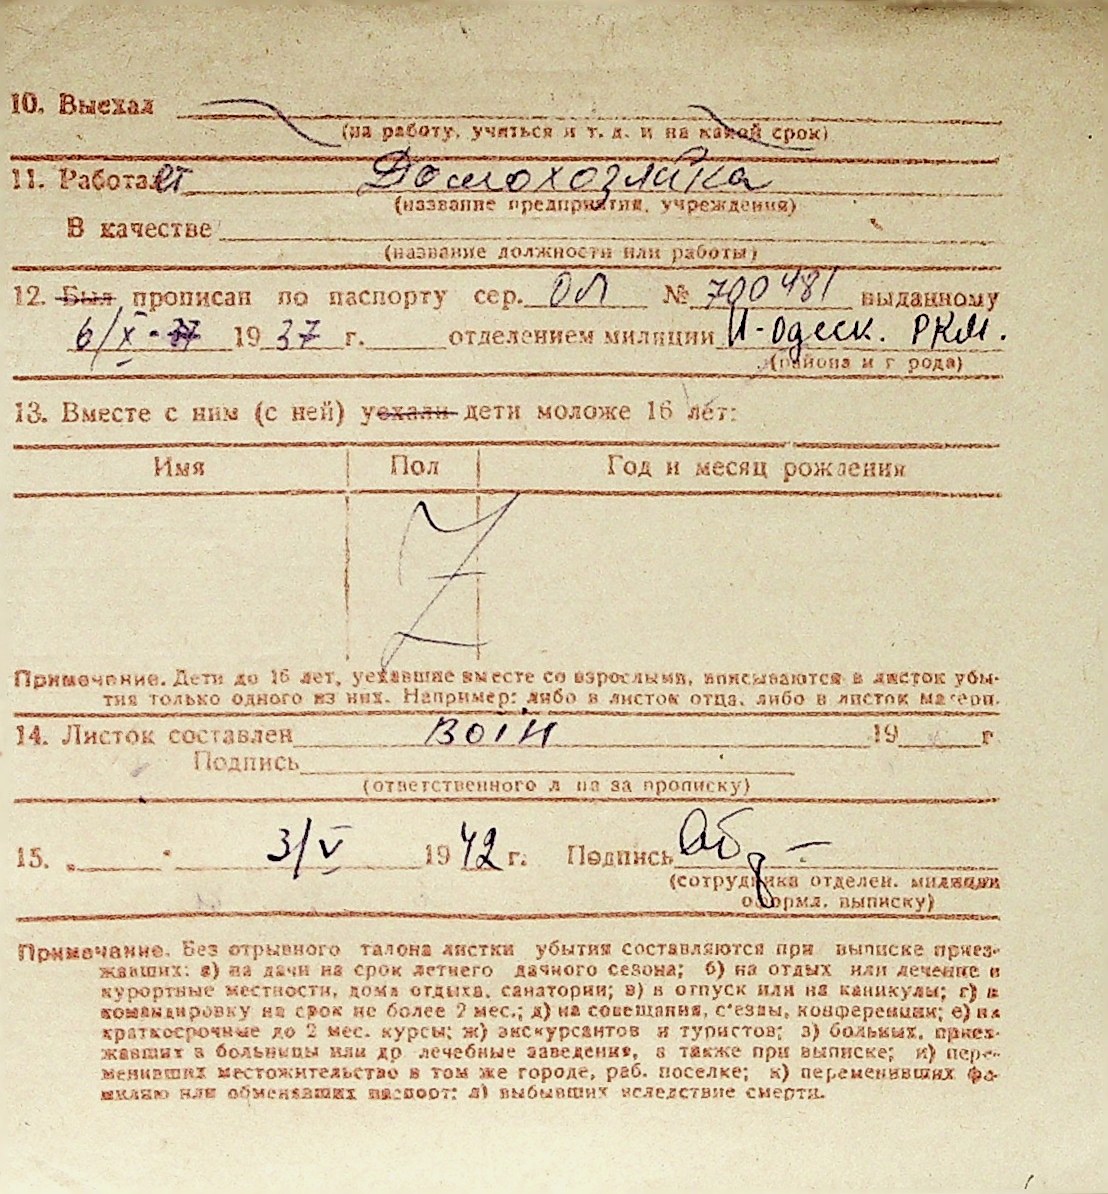 10. Выехал
(на работу, учиться и т. д. и на какой срок)
11. Работает Домохозяйка
(название предприятия, учреждения)
В качестве
(название должности или работы)
12. Был прописан по паспорту сер. ОЛ № 700481 выданному
6/X - 37 1937 г. отделением милиции И-Одесск. РКМ.
(района и города)
13. Вместе с ним (с ней) уехали дети моложе 16 лет:
Имя Пол Год и месяц рождения
Z
Примечание. Дети до 16 лет, уехавшие вместе со взрослыми, вписываются в листок убы-
тия только одного из них. Например: либо в листок отца, либо в листок матери.
14. Листок составлен 19 г.
Подпись
(ответственного лица за прописку)
15. 3/V 1942 г. Подпись
(сотрудника отделен. милиции
оформл. выписку)
Примечание. Без отрывного талона листки убытия составляются при выписке приез-
жавших: а) на дачи на срок летнего дачного сезона; б) на отдых или лечение в
курортные местности, дома отдыха, санатории; в) в отпуск или на каникулы; г) в
командировку на срок не более 2 мес.; д) на совещания, с'езды, конференции; е) на
краткосрочные до 2 мес. курсы; ж) экскурсантов и туристов; з) больных, приез-
жавших в больницы или др лечебные заведения, а также при выписке; и) пере-
менивших местожительство в том же городе, раб. поселке; к) переменивших фа-
милию или обменявших паспорт; л) выбывших вследствие смерти.